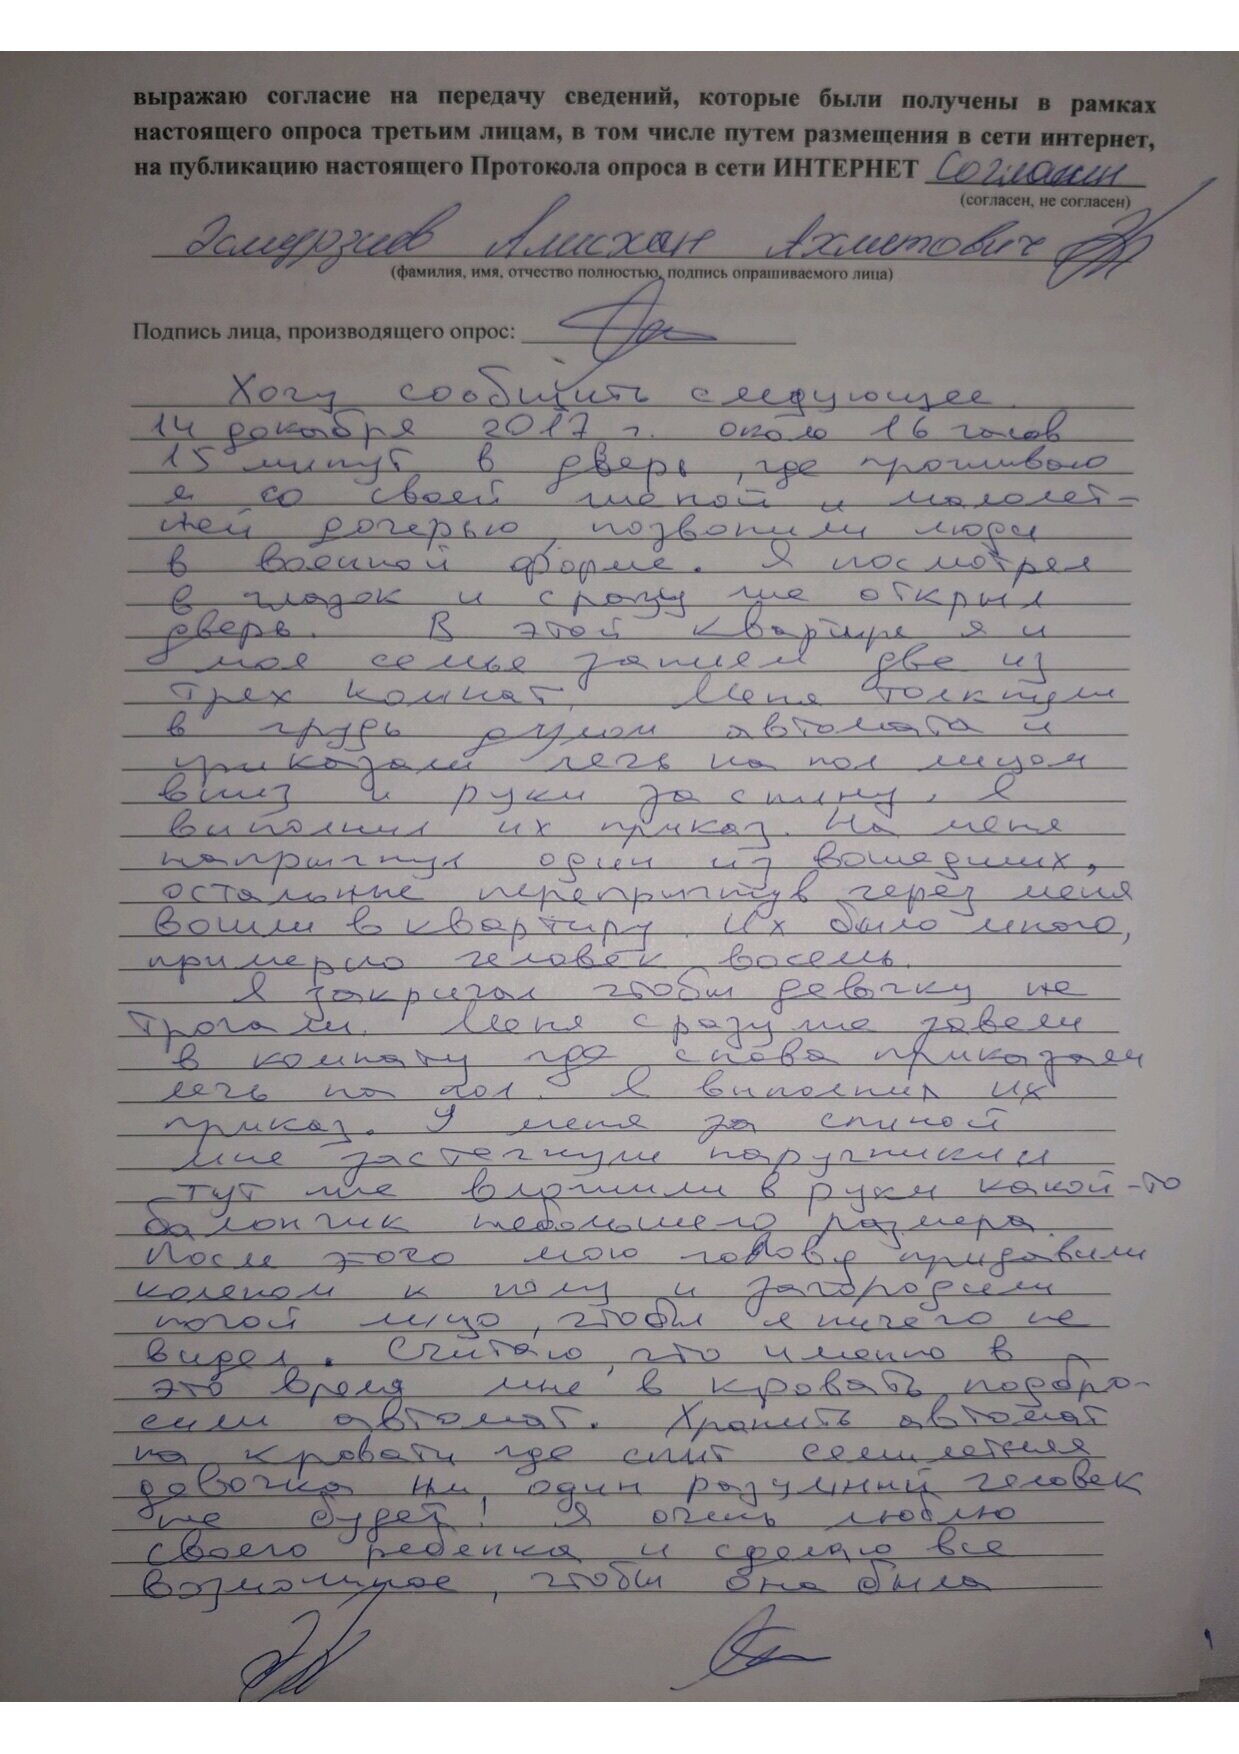 выражаю согласие на передачу сведений, которые были получены в рамках
настоящего опроса третьим лицам, в том числе путем размещения в сети интернет,
на публикацию настоящего Протокола опроса в сети ИНТЕРНЕТ Согласен
(согласен, не согласен)
Эсмурзиев Алихан Ахметович
(фамилия, имя, отчество полностью, подпись опрашиваемого лица)
Подпись лица, производящего опрос:
Хочу сообщить следующее
14 декабря 2017 г. около 16 часов
15 минут в дверь, где проживаю
я со своей женой и малолет-
ней дочерью позвонили люди
в военной форме. Я посмотрел
в глазок и сразу же открыл
дверь. В этой квартире я и
моя семья занием две из
трех комнат. Меня толкнули
в грудь дулом автомата и
приказали лечь на пол лицом
вниз и руки за спину. Я
выполнил их приказ. На меня
напрыгнул один из вошедших,
остальные перепрыгнув через меня
вошли в квартиру. Их было много,
примерно человек восемь.
Я закричал чтобы девочку не
трогали. Меня сразу же завели
в комнату где снова приказали
лечь на пол. Я выполнил их
приказ. У меня за спиной
мне застегнули наручники и
тут же вложили в руки какой-то
балончик небольшого размера
После этого мою голову придавили
коленом к полу и загородили
ногой лицо, чтобы я ничего не
видел. Считаю, что именно в
это время мне в кровать подбро-
сили автомат. Хранить автомат
на кровати где спит семилетняя
девочка ни один разумный человек
не будет! Я очень люблю
своего ребенка и сделаю все
возможное, чтобы она была